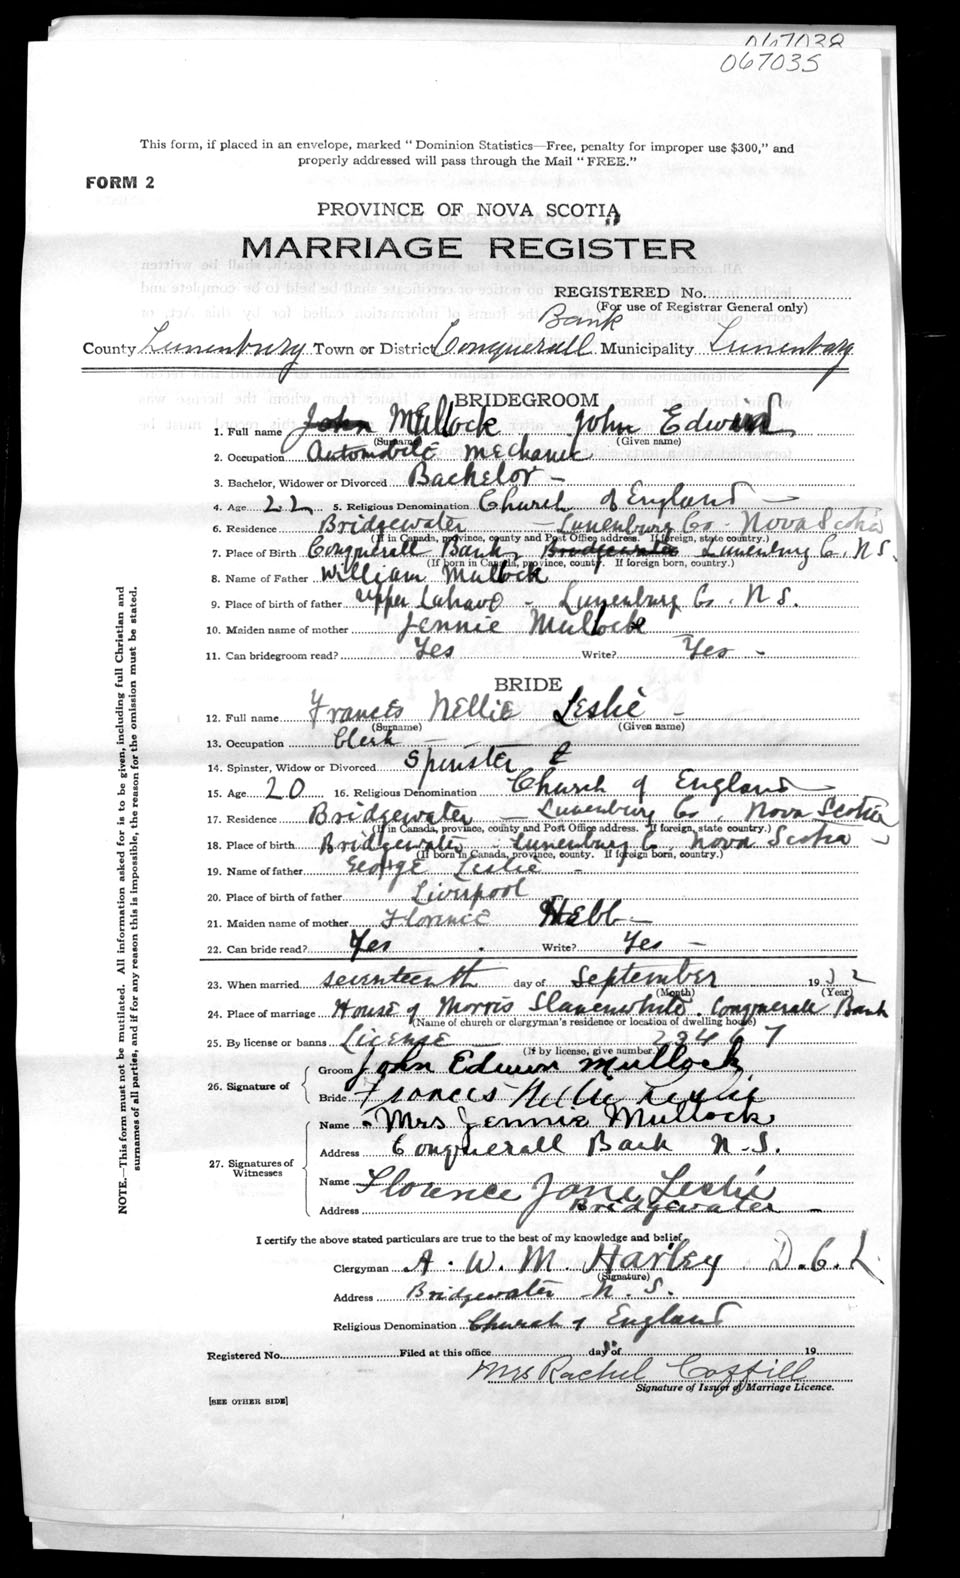 067038
067035
This form, if placed in an envelope, marked “Dominion Statistics—Free, penalty for improper use $300,” and
properly addressed will pass through the Mail “FREE.”
FORM 2
PROVINCE OF NOVA SCOTIA
MARRIAGE REGISTER
REGISTERED No.
(For use of Registrar General only)
Bank
County Lunenburg Town or District Conquerall Municipality Lunenburg
BRIDEGROOM
1. Full name John Mullock John Edward
(Surname) (Given name)
2. Occupation Automobile mechanic
3. Bachelor, Widower or Divorced Bachelor -
4. Age 22 5. Religious Denomination Church of England
6. Residence Bridgewater - Lunenburg Co - Nova Scotia
(If in Canada, province, county and Post Office address. If foreign, state country.)
7. Place of Birth Conquerall Bank, Bridgewater Lunenburg Co. N S.
(If born in Canada, province, county. If foreign born, country.)
8. Name of Father William Mullock
9. Place of birth of father Upper Lahave - Lunenburg Co. N S.
10. Maiden name of mother Jennie Mullock
11. Can bridegroom read? Yes Write? Yes -
BRIDE
12. Full name Frances Nellie Leslie -
(Surname) (Given name)
13. Occupation Clerk -
14. Spinster, Widow or Divorced Spinster
15. Age 20 16. Religious Denomination Church of England
17. Residence Bridgewater - Lunenburg Co, Nova Scotia
(If in Canada, province, county and Post Office address. If foreign, state country.)
18. Place of birth Bridgewater - Lunenburg Co Nova Scotia
(If born in Canada, province, county. If foreign born, country.)
19. Name of father George Leslie -
20. Place of birth of father Liverpool
21. Maiden name of mother Florence Hebb -
22. Can bride read? Yes Write? Yes -
23. When married seventeenth day of September 1932
(Month) (Year)
24. Place of marriage House of Morris Slauenwhite. Conquerall Bank
(Name of church or clergyman's residence or location of dwelling house)
25. By license or banns License - 23467
(If by license, give number.)
26. Signature of Groom John Edwin Mullock
Bride Frances Nellie Leslie
27. Signatures of Witnesses
Name Mrs Jennie Mullock
Address Conquerall Bank N.S.
Name Florence Jane Leslie
Address Bridgewater -
I certify the above stated particulars are true to the best of my knowledge and belief.
Clergyman A. W. M. Harley D.C.L
(Signature)
Address Bridgewater N.S.
Religious Denomination Church of England
Registered No. Filed at this office day of 19
Mrs Rachel Coffill
Signature of Issuer of Marriage Licence.
[SEE OTHER SIDE]
NOTE.—This form must not be mutilated. All information asked for is to be given, including full Christian and
surnames of all parties, and if for any reason this is impossible, the reason for the omission must be stated.